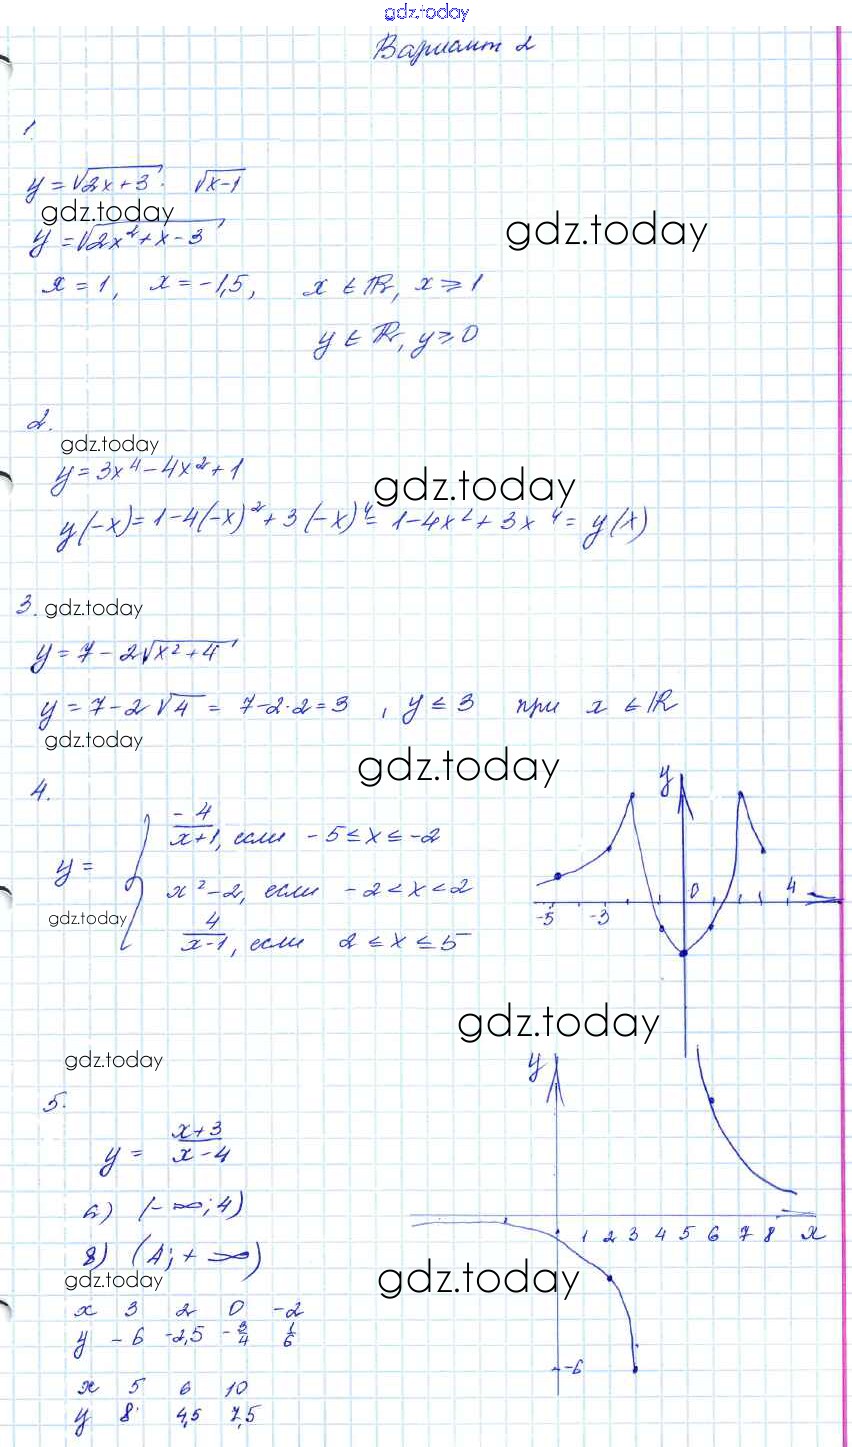 gdz.today
Вариант 2
1.
y = √(2x+3) · √(x-1)
gdz.today
gdz.today
y = √(2x²+x-3)
x = 1, x = -1,5, x ∈ R, x ⩾ 1
y ∈ R, y ⩾ 0
2.
gdz.today
y = 3x⁴ - 4x² + 1
gdz.today
y(-x) = 1-4(-x)² + 3(-x)⁴ = 1-4x² + 3x⁴ = y(x)
3.
gdz.today
y = 7 - 2√(x²+4)
y = 7-2√4 = 7-2·2 = 3, y ⩽ 3 при x ∈ R
gdz.today
gdz.today
4.
y = { -4/(x+1), если -5 ⩽ x ⩽ -2
x²-2, если -2 < x < 2
4/(x-1), если 2 ⩽ x ⩽ 5
y
0
-5 -3 4
gdz.today
gdz.today
gdz.today
5.
y = (x+3)/(x-4)
а) (-∞; 4)
в) (4; +∞)
gdz.today
x 3 2 0 -2
y -6 -2,5 -3/4 1/6
x 5 6 10
y 8 4,5 7,5
y
1 2 3 4 5 6 7 8 x
gdz.today
-6